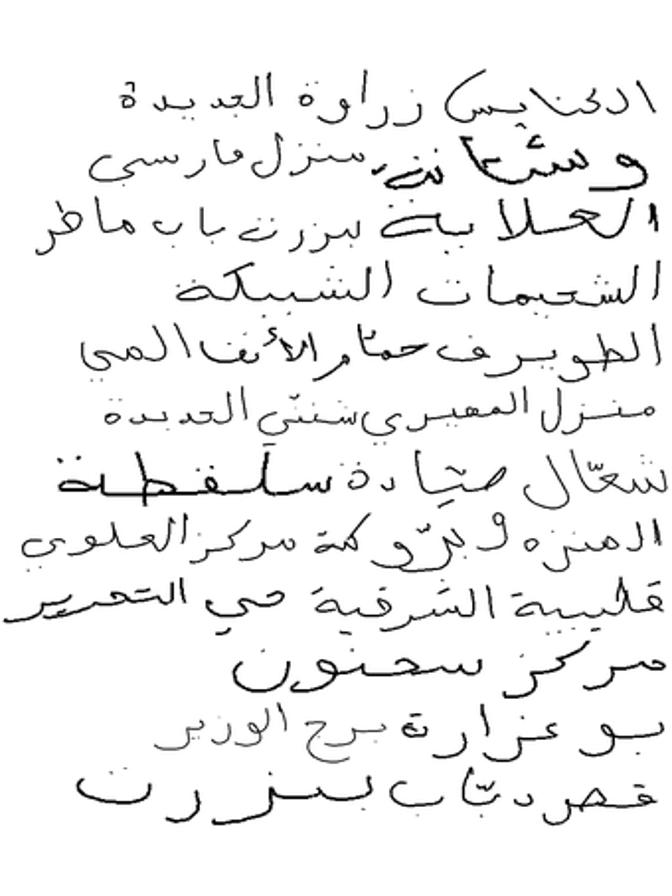 الكنايس زراوة الجديدة
وشتاتة منزل فارسي
العلاية بنزرت باب ماطر
الشعيمات الشبيكة
الطويرف حمام الأنف المي
منزل المهيري شنني الجديدة
شعّال صيّادة سلقطة
المنزه 9 بئروكمة مركز العلوي
قليبية الشرقية حي التحرير
مركز سحنون
بو عرارة برج الوزير
قصر دبّاب بنزرت